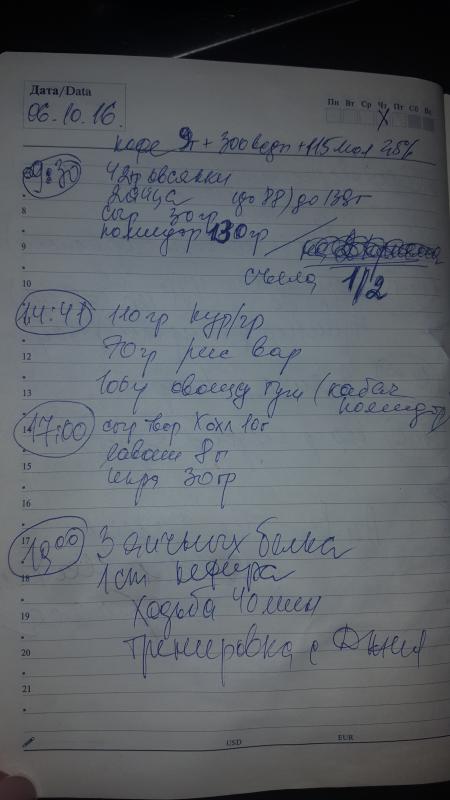 Дата/Data
06.10.16.
Пн Вт Ср Чт Пт Сб Вс
кофе 9г + 300 водп + 115 мол 2,5%
9:30
42гр овсянки
2 яйца (до 88) до 138г
8
сыр 30гр
помидор 130гр
9
10
съела 1/2
14:41
110гр кур/гр
12
70гр рис вар
13
100гр овощи туш (кабач
помидор
14
17:00
сыр твор Хохл 10г
15
лаваш 8г
икра 30гр
16
17
19:00
3 яичных белка
18
1 ст кефира
19
ходьба 40 мин
20
тренировка с
21
USD EUR